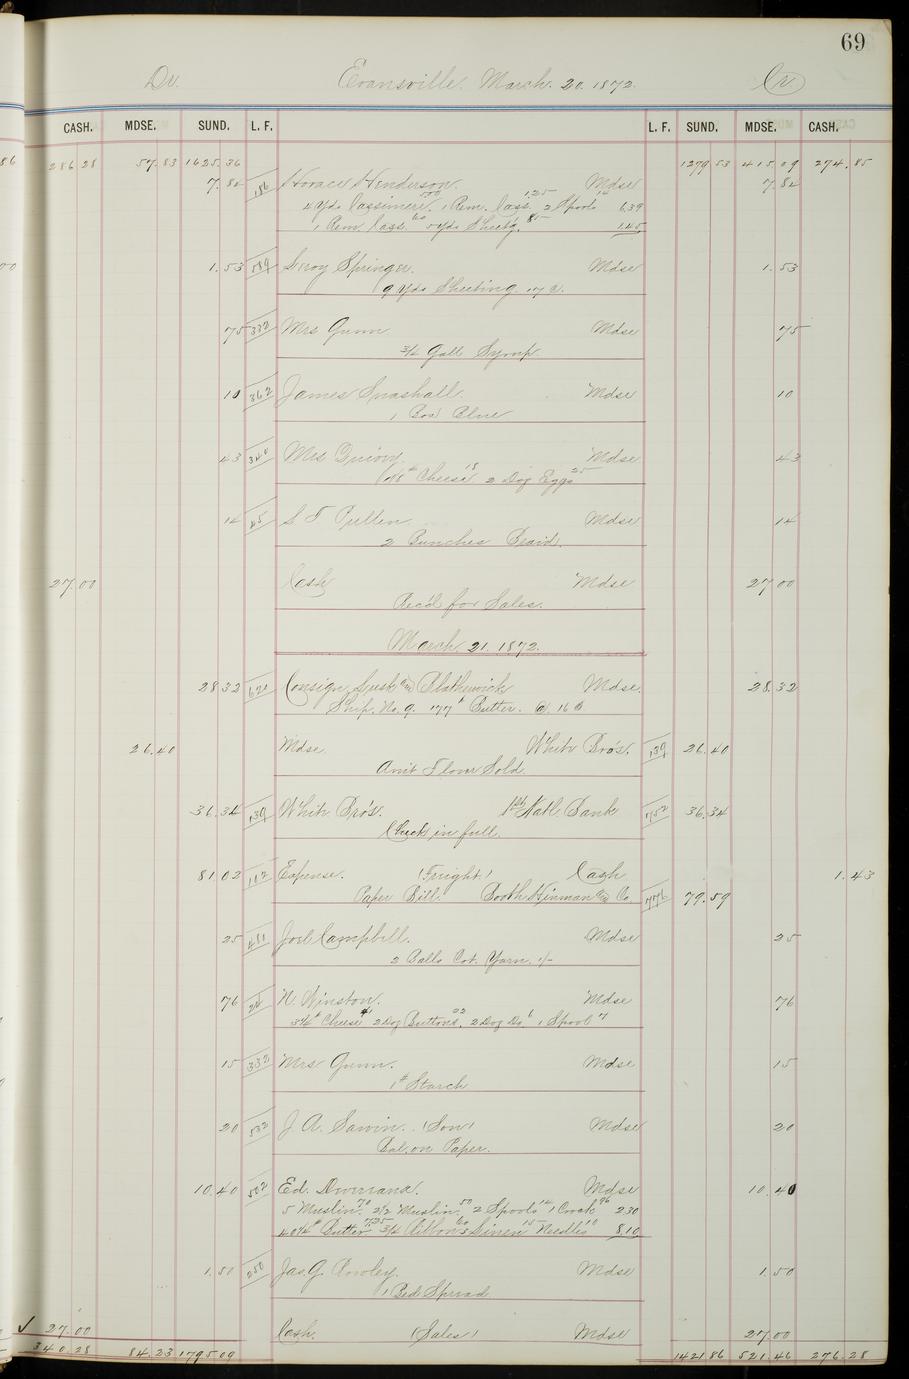 69
Dr. Evansville. March. 20. 1872. Cr.
CASH. MDSE. SUND. L. F. L. F. SUND. MDSE. CASH.
286 28 57.83 1625.36 1279 53 415.09 274.85
7.84 186 Horace Henderson. Mdse 7.84
4 Yds Cassimere. 1 Rem. Cass. 125 2 Spools 14 6.39
1 Rem. Cass. 60 5 Yds Sheetg. 85 1.45
1.53 589 Leroy Springer. Mdse 1.53
9 Yds Sheeting. 17 c.
75 332 Mrs Gunn Mdse 75
3/4 Gall Syrup.
10 362 James Snashall. Mdse 10
1 Box Blue
43 340 Mrs Mdse 43
Cheese 18 2 Doz Eggs 25
14 45 S T Pullen. Mdse 14
2 Bunches Braid.
27.00 Cash Mdse 27 00
Rec'd for Sales.
March 21. 1872.
28 32 621 Consign. Lusk and Mdse. 28.32
Ship. No. 9. 177 # Butter. @ 16 c
26.40 Mdse. White Bro's. 139 26.40
Amt Flour Sold.
36.34 139 White Bro's. 1st Natl. Bank 752 36.34
Check in full.
81 02 102 Expense. (Freight) Cash 1.43
Paper Bill. Booth Hinman and Co. 776 79.59
25 481 Joel Campbell. Mdse 25
2 Balls Cot. Yarn. 1/-
76 24 N. Winston. Mdse 76
3 3/4 # Cheese 2 Doz Buttons. 22 2 Doz Do 6 1 Spool 7
15 332 Mrs Gunn. Mdse 15
1 # Starch
20 532 J A. Sawin. (Son) Mdse 20
Bal. on Paper.
10.40 502 Ed. Mdse 10.40
5 Muslin. 70 2 1/2 Muslin. 50 2 Spools 14 1 Crock 96 2 30
40 1/4 # Butter 7.25 3/4 Ribbon 60 Linen 15 Needles 10 8.10
1.50 250 Jas. G. Crowley. Mdse 1.50
1 Bed Spread
✓ 27.00 Cash. (Sales) Mdse 27.00
340.28 84.23 1795.09 1421 86 521.46 276.28